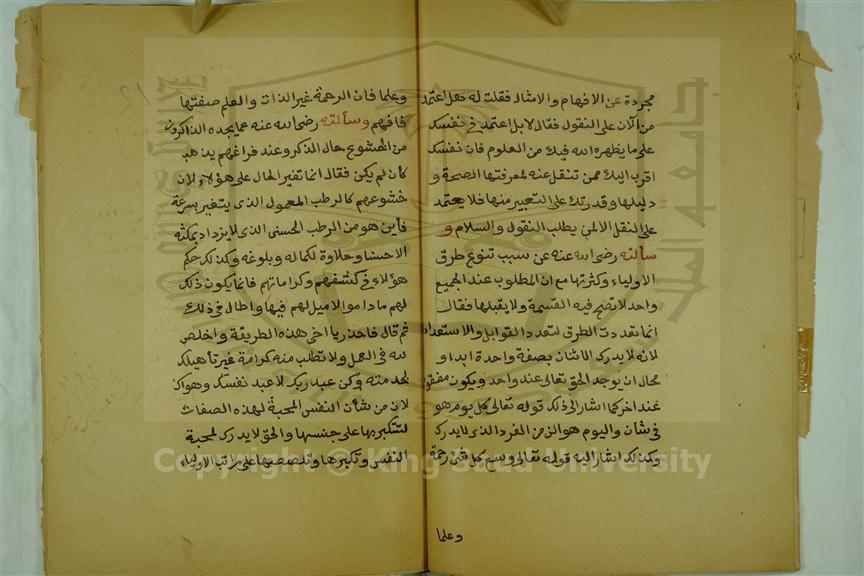 مجردة عن الافهام والامثال فقلت له هل اعتمد
من الآن على النقول فقال لا بل اعتمد في نفسك
على ما يظهره الله فيك من العلوم فان نفسك
اقرب اليك ممن تنقل عنه لمعرفتها الصحة و
دليلها وقدرتك على التعبير منها فلا يعتمد
على النقل الا لمن يطلب النقول والسلام و
سألته رضى الله عنه عن سبب تنوع طرق
الاولياء وكثرتها مع ان المطلوب عند الجميع
واحد لا تصح فيه القسمة ولا يقبلها فقال
انما تعددت الطرق لتعدد القوابل والاستعداد
لانه لا يدرك الاثنان بصفة واحدة ابدا و
محال ان يوجد الحق تعالى عند واحد ويكون مفقو
عند اخر كما اشار الى ذلك قوله تعالى كل يوم هو
في شأن واليوم هو الزمن الفرد الذى لا يدرك
وكذلك اشار اليه قوله تعالى وسع كل شئ رحمة
وعلما
وعلما فان الرحمة غير الذات والعلم صفتها
فافهم وسألته رضى الله عنه عما يجده الذاكرون
من الخشوع حال الذكر وعند فراغهم يذهب
كأن لم يكن فقال انما تغير الحال على هؤلاء لان
خشوعهم كالرطب المعمول الذى يتغير بسرعة
فأين هو من الرطب الحسنى الذى لا يزداد بمكثه
الا حسنا وحلاوة لكماله وبلوغه وكذلك حكم
هؤلاء في كشفهم وكراماتهم فانما يكون ذلك
لهم ما داموا لا ميل لهم فيها واطال في ذلك
ثم قال فاحذر يا اخى هذه الطريقة واخلص
لله في العمل ولا تطلب منه كرامة غير تأهيلك
لخدمته وكن عبد ربك لا عبد نفسك وهواك
لان من شأن النفس المحبة لهذه الصفات
لتتكبر بها على جنسها والحق لا يدرك لمحبة
النفس وتكبرها وتلصصها على مراتب الاولياء
Copyright © King Saud University